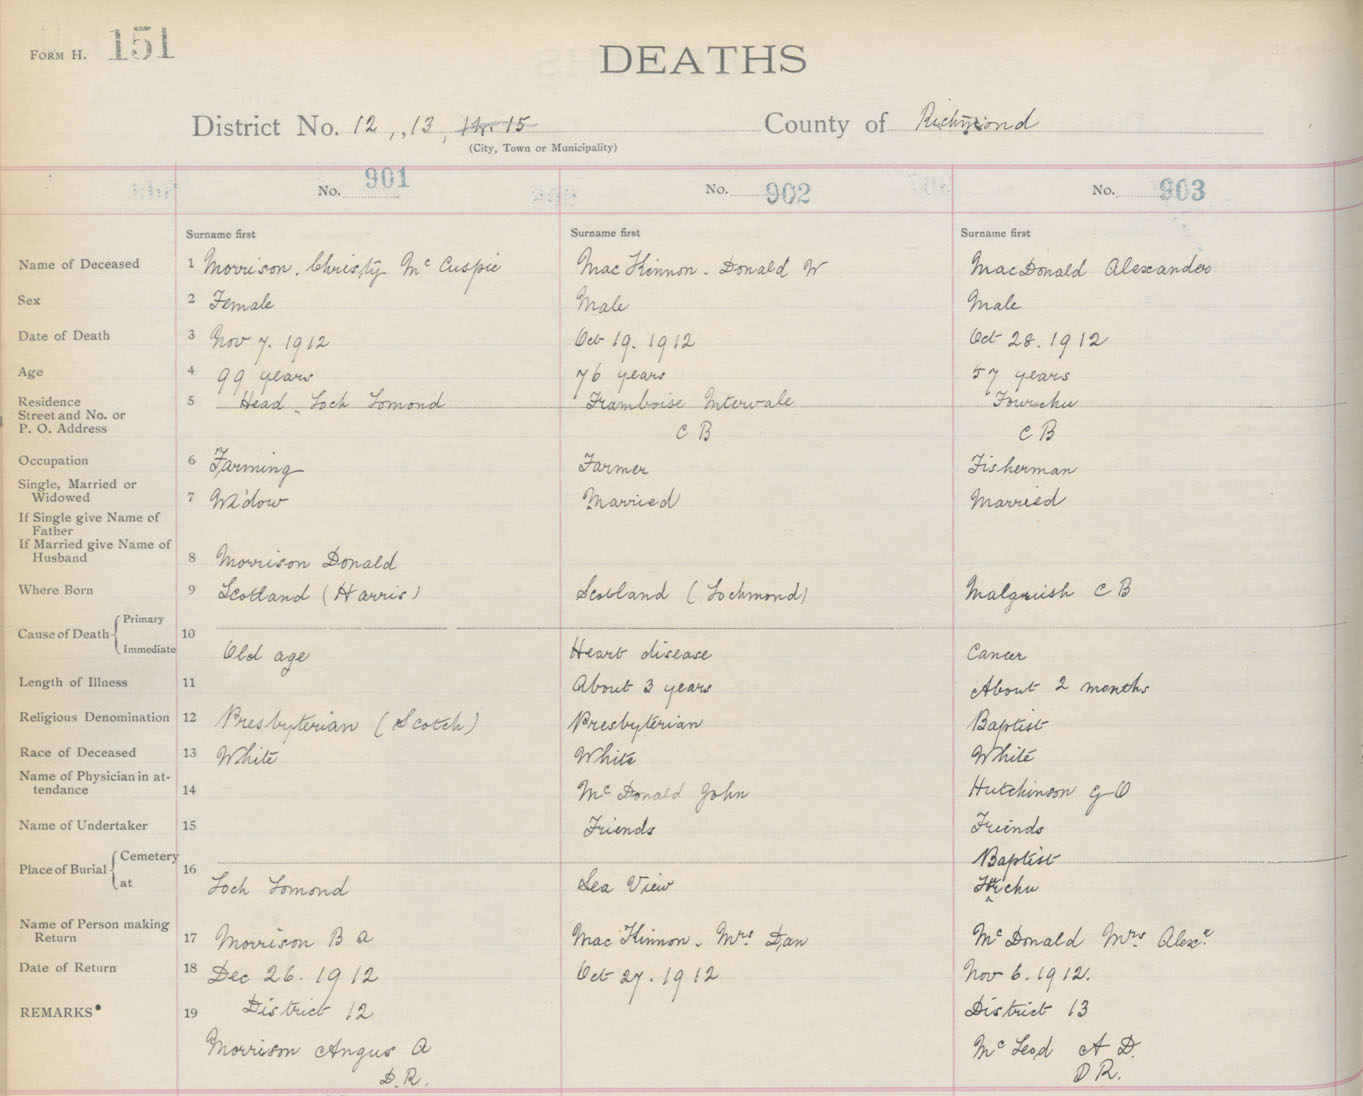 FORM H. 151
DEATHS
District No. 12, , 13, 14. 15 County of Richmond
(City, Town or Municipality)
No. 901 No. 902 No. 903
Surname first Surname first Surname first
Name of Deceased 1 Morrison. Christy Mc Cuspie Mac Kinnon - Donald W MacDonald Alexander
Sex 2 Female Male Male
Date of Death 3 Nov 7. 1912 Oct 19. 1912 Oct 28. 1912
Age 4 99 years 76 years 57 years
Residence 5 Head Loch Lomond Framboise Intervale Fourchu
Street and No. or
P. O. Address C B C B
Occupation 6 Farming Farmer Fisherman
Single, Married or
Widowed 7 Widow Married Married
If Single give Name of
Father
If Married give Name of
Husband 8 Morrison Donald
Where Born 9 Scotland (Harris) Scotland (Lochmond) Malguish C B
Cause of Death Primary 10
Immediate Old age Heart disease Cancer
Length of Illness 11 About 3 years About 2 months
Religious Denomination 12 Presbyterian (Scotch) Presbyterian Baptist
Race of Deceased 13 White White White
Name of Physician in at-
tendance 14 Mc Donald John Hutchinson G O
Name of Undertaker 15 Friends Friends
Place of Burial Cemetery 16 Baptist
at Loch Lomond Sea View
Name of Person making
Return 17 Morrison B A Mac Kinnon - Mrs Dan Mc Donald Mrs Alexr
Date of Return 18 Dec 26. 1912 Oct 27. 1912 Nov 6. 1912.
REMARKS* 19 District 12 District 13
Morrison Angus A Mc Leod A D.
D.R. D R.